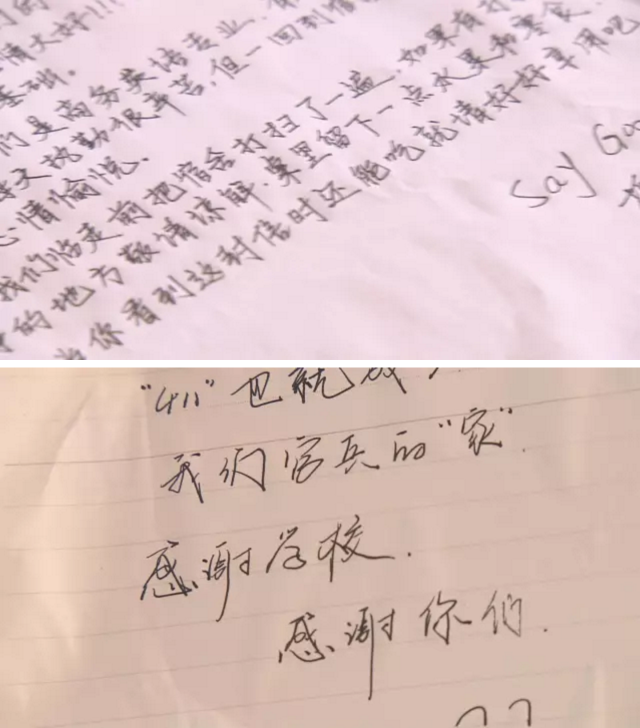 情大好!!!
基础。
们是商务英语专业,
天执勤很辛苦,但一回到
心情愉悦.
我们临走前把宿舍打扫了一遍,如果有打
的地方敬请谅解.桌里留下一点水果和零食.
当你看到这封信时还能吃就请好好享用吧
Say Go
"411"也就成
我们官兵的"家".
感谢学校.
感谢你们.